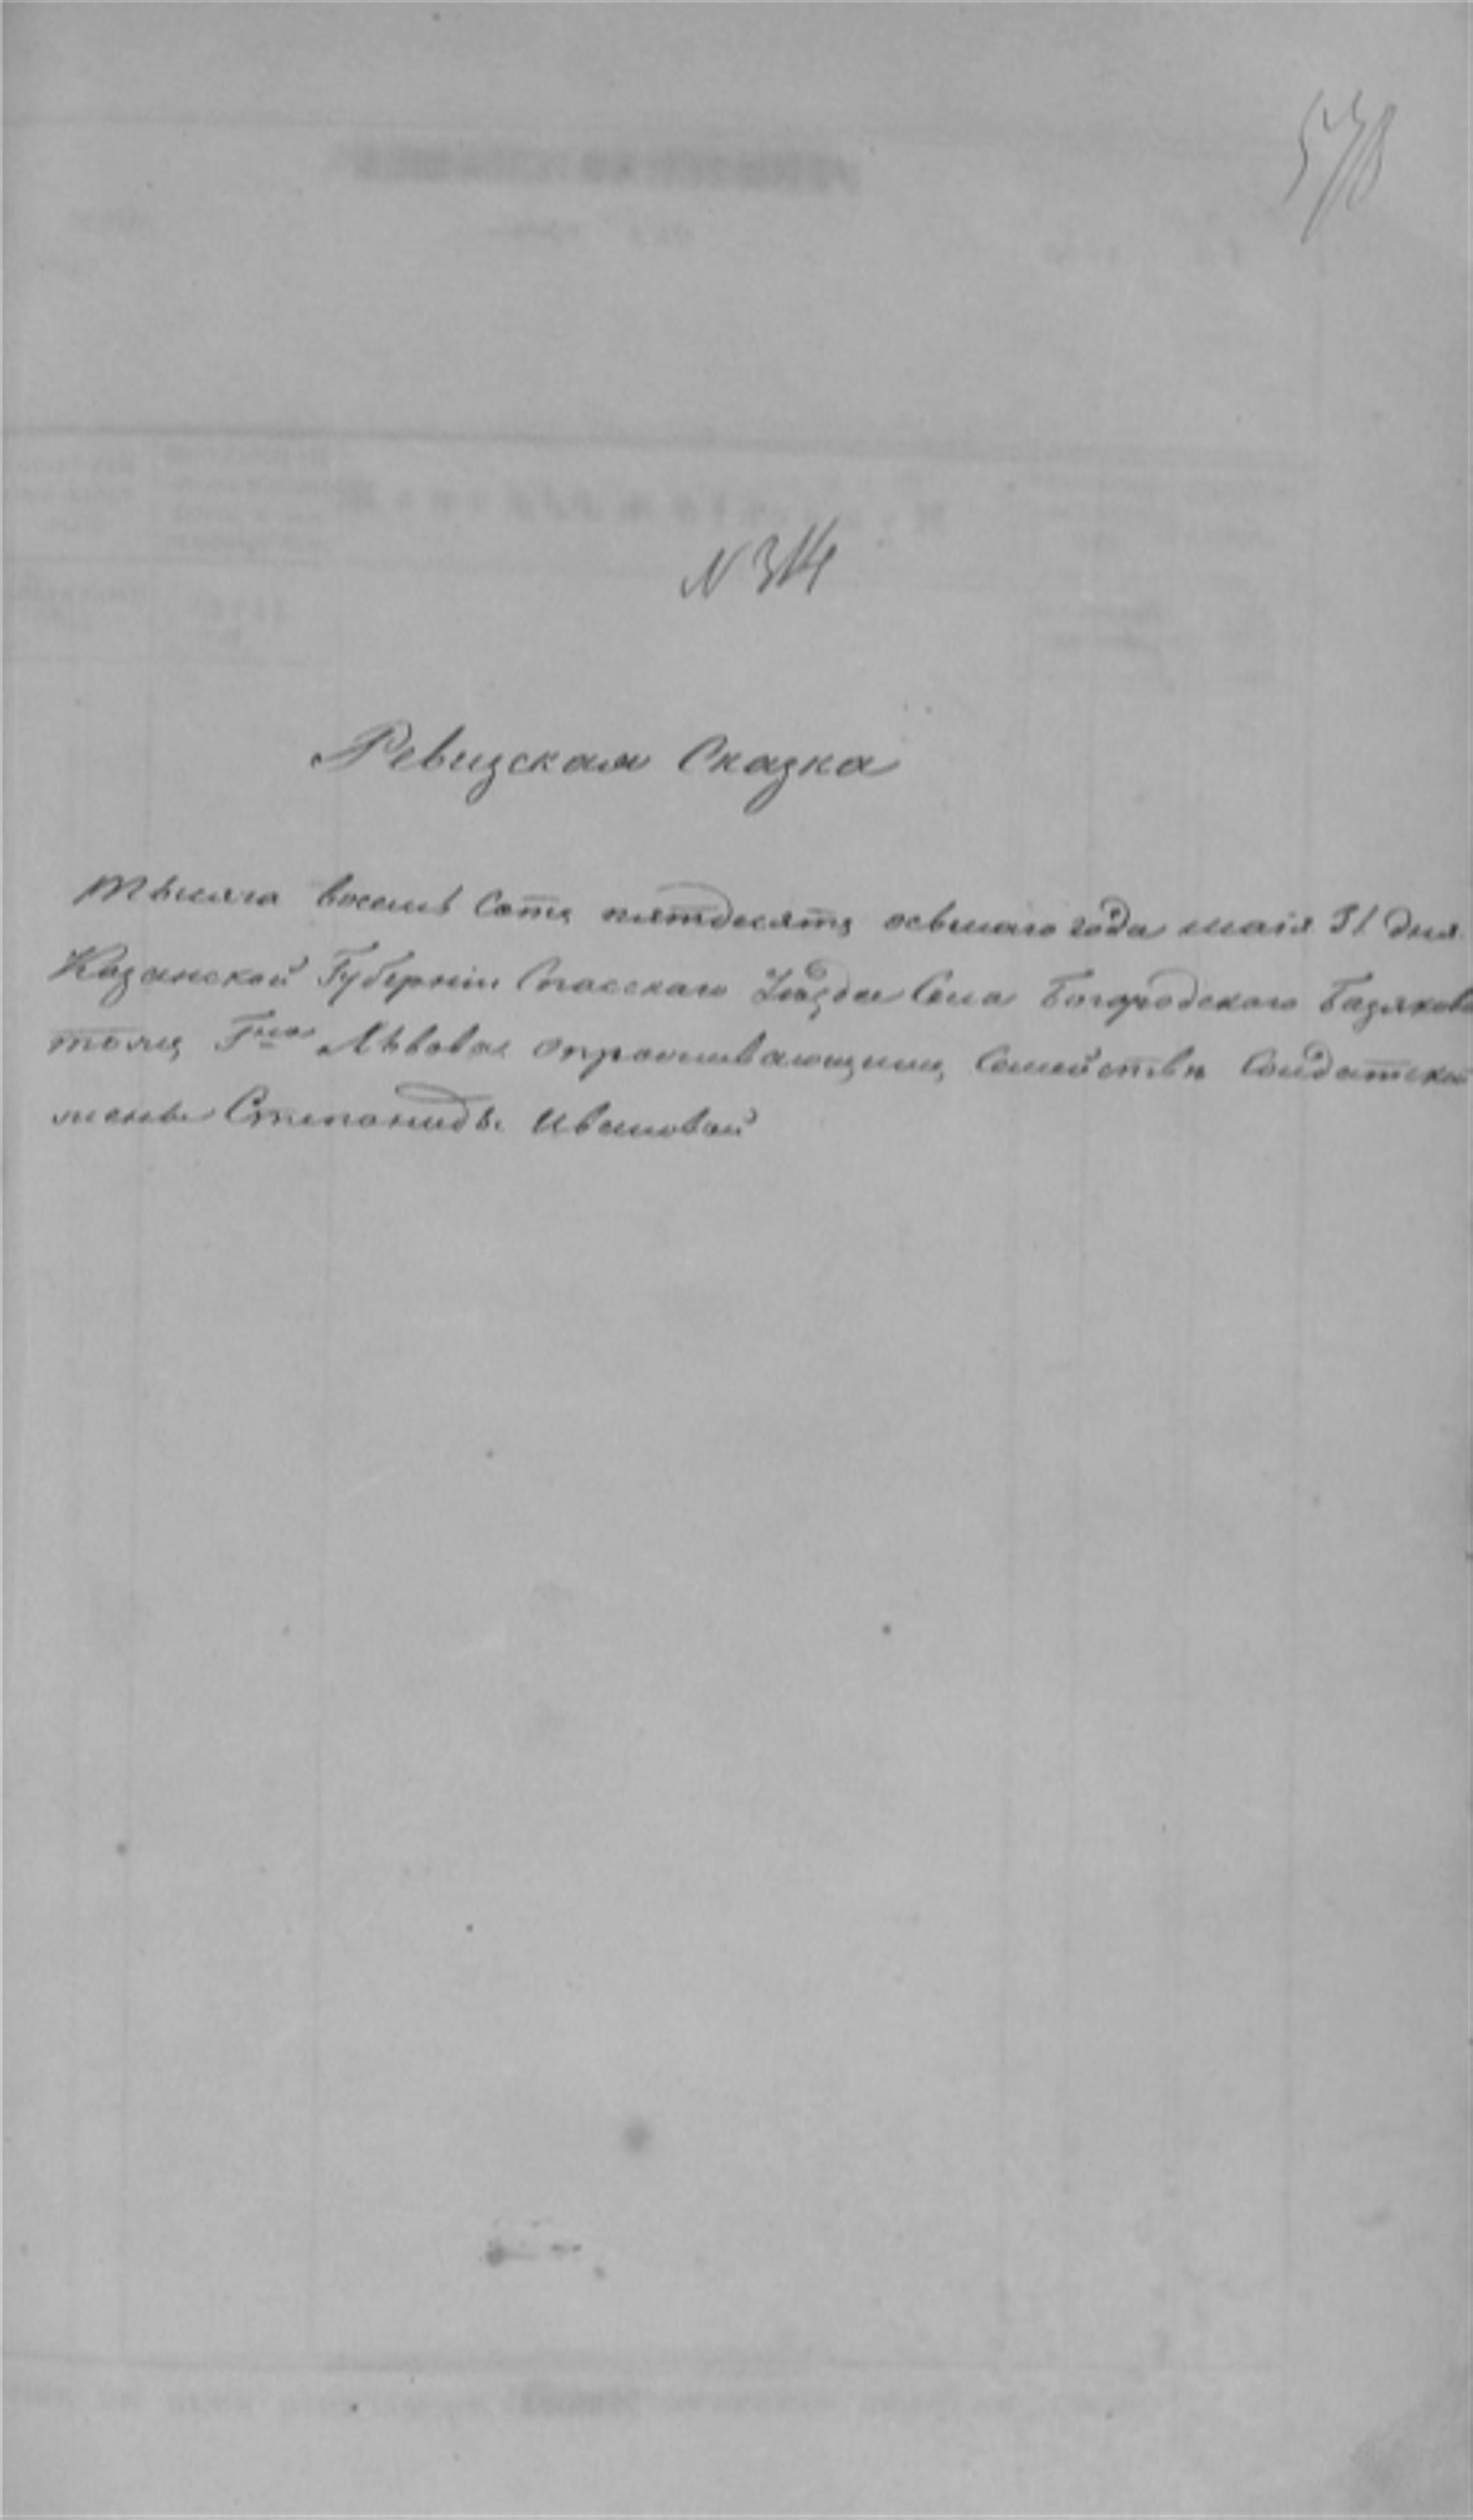 578
N 314
Ревизская Сказка
Тысяча восемь сотъ пятьдесятъ осьмаго года маія 31 дня
Казанской Губерніи Спасскаго Уѣзда Села Богородскаго Базяково
тожъ Г<sup>на</sup> Львова о Семействѣ Солдатской
жены Степаниды Ивановой